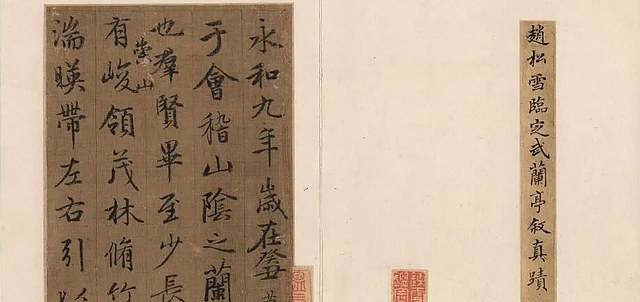 趙松雪臨定武蘭亭敘真蹟
永和九年歲在癸
于會稽山陰之蘭
也羣賢畢至少長
崇山
有峻領茂林脩竹
湍暎帶左右引